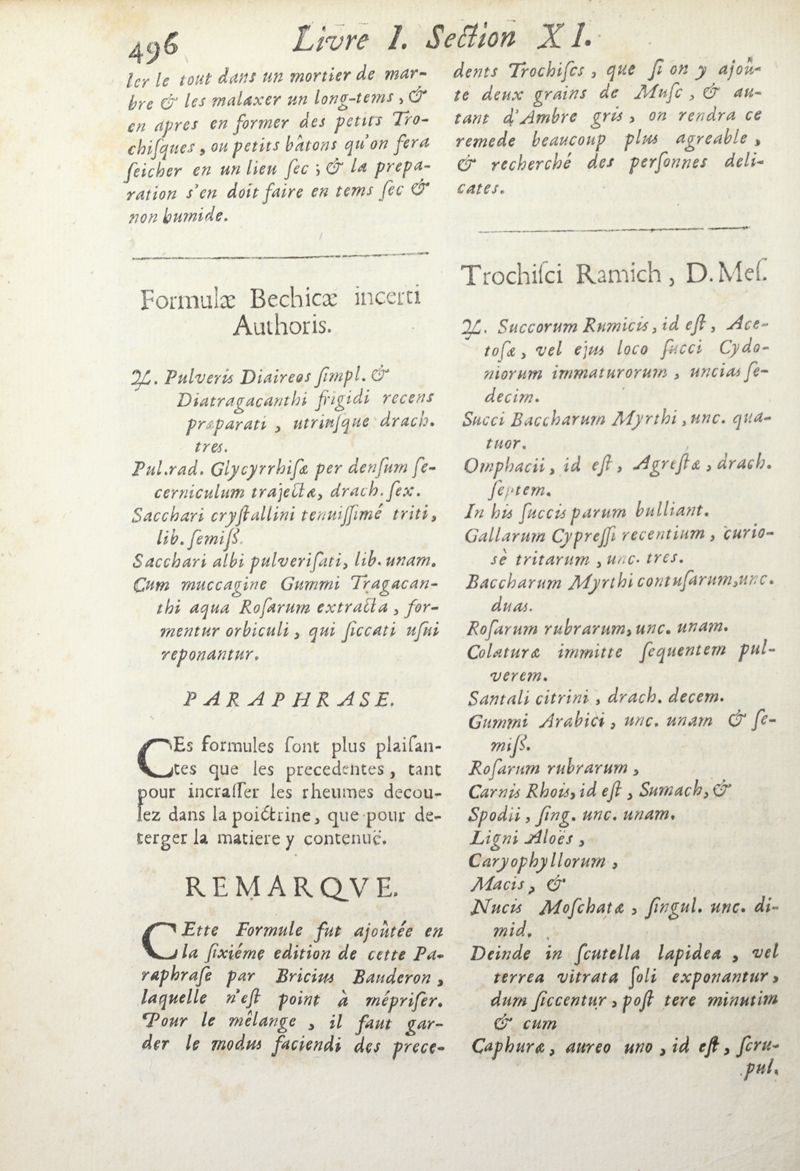 496 Livre I. Section XI.
ler le tout dans un mortier de mar-
bre & les malaxer un long-tems, &
en apres en former des petits Tro-
chisques, ou petits bâtons qu'on fera
seicher en un lieu sec; & la prepa-
ration s'en doit faire en tems sec &
non humide.
Formulæ Bechicæ incerti
Authoris.
℞. Pulveris Diaireos simpl. &
Diatragacanthi frigidi recens
præparati, utriusque drach.
tres.
Pul.rad. Glycyrrhisæ per densum se-
cerniculum trajectæ, drach. sex.
Sacchari crystallini tenuissimé triti,
lib. semiß.
Sacchari albi pulverisati, lib. unam.
Cum muccagine Gummi Tragacan-
thi aqua Rosarum extracta, for-
mentur orbiculi, qui siccati usui
reponantur.
PARAPHRASE.
CEs formules sont plus plaisan-
tes que les precedentes, tant
pour incrasser les rheumes decou-
lez dans la poictrine, que pour de-
terger la matiere y contenuë.
REMARQVE.
CEtte Formule fut ajoûtée en
la sixiéme edition de cette Pa-
raphrase par Bricius Bauderon,
laquelle n'est point à mépriser.
Pour le mélange, il faut gar-
der le modus faciendi des prece-
dents Trochiscs, que si on y ajoû-
te deux grains de Musc, & au-
tant d'Ambre gris, on rendra ce
remede beaucoup plus agreable,
& recherché des personnes deli-
cates.
Trochisci Ramich, D. Mes.
℞. Succorum Rumicis, id est, Ace-
tosæ, vel ejus loco succi Cydo-
niorum immaturorum, uncias se-
decim.
Succi Baccharum Myrthi, unc. qua-
tuor.
Omphacii, id est, Agrestæ, drach.
septem.
In his succis parum bulliant.
Gallarum Cypressi recentium, curio-
sè tritarum, unc. tres.
Baccharum Myrthi contusarum, unc.
duas.
Rosarum rubrarum, unc. unam.
Colaturæ immitte sequentem pul-
verem.
Santali citrini, drach. decem.
Gummi Arabici, unc. unam & se-
miß.
Rosarum rubrarum,
Carnis Rhois, id est, Sumach, &
Spodii, sing. unc. unam.
Ligni Aloës,
Caryophyllorum,
Macis, &
Nucis Moschatæ, singul. unc. di-
mid.
Deinde in scutella lapidea, vel
terrea vitrata soli exponantur,
dum siccentur, post tere minutim
& cum
Caphuræ, aureo uno, id est, scru-
pul.